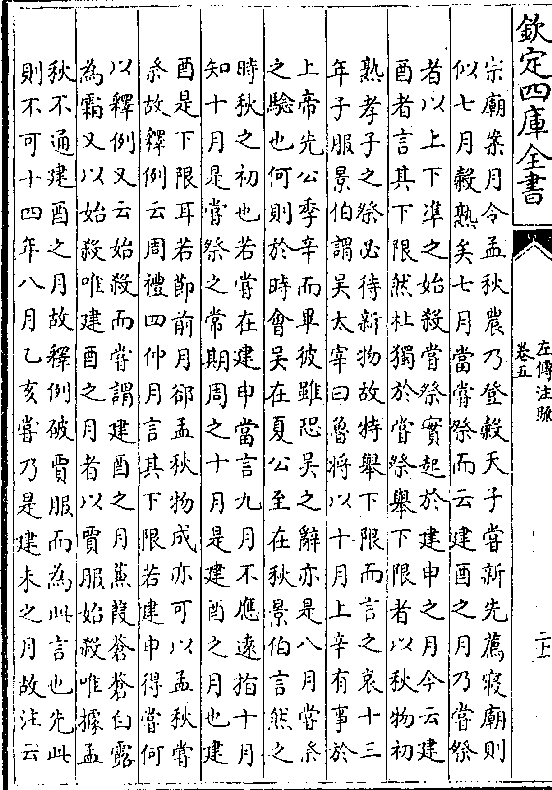 欽定四庫全書
左傳注疏
卷五
宗廟案月令孟秋農乃登穀天子嘗新先薦寢廟則
似七月穀熟矣七月當嘗祭而云建酉之月乃嘗祭
者以上下準之始殺嘗祭實起於建申之月今云建
酉者言其下限然杜獨於嘗祭舉下限者以秋物初
熟孝子之祭必待新物故特舉下限而言之哀十三
年子服景伯謂吳太宰曰魯將以十月上辛有事於
上帝先公季辛而畢彼雖恐吳之辭亦是八月嘗祭
之驗也何則於時會吳在夏公至在秋景伯言然之
時秋之初也若嘗在建申當言九月不應遠指十月
知十月是嘗祭之常期周之十月是建酉之月也建
酉是下限耳若節前月卻孟秋物成亦可以孟秋嘗
祭故釋例云周禮四仲月言其下限若建申得嘗何
以釋例又云始殺而嘗謂建酉之月蒹葭蒼蒼白露
為霜又以始殺唯建酉之月者以賈服始殺唯據孟
秋不通建酉之月故釋例破賈服而為此言也先此
則不可十四年八月乙亥嘗乃是建未之月故注云